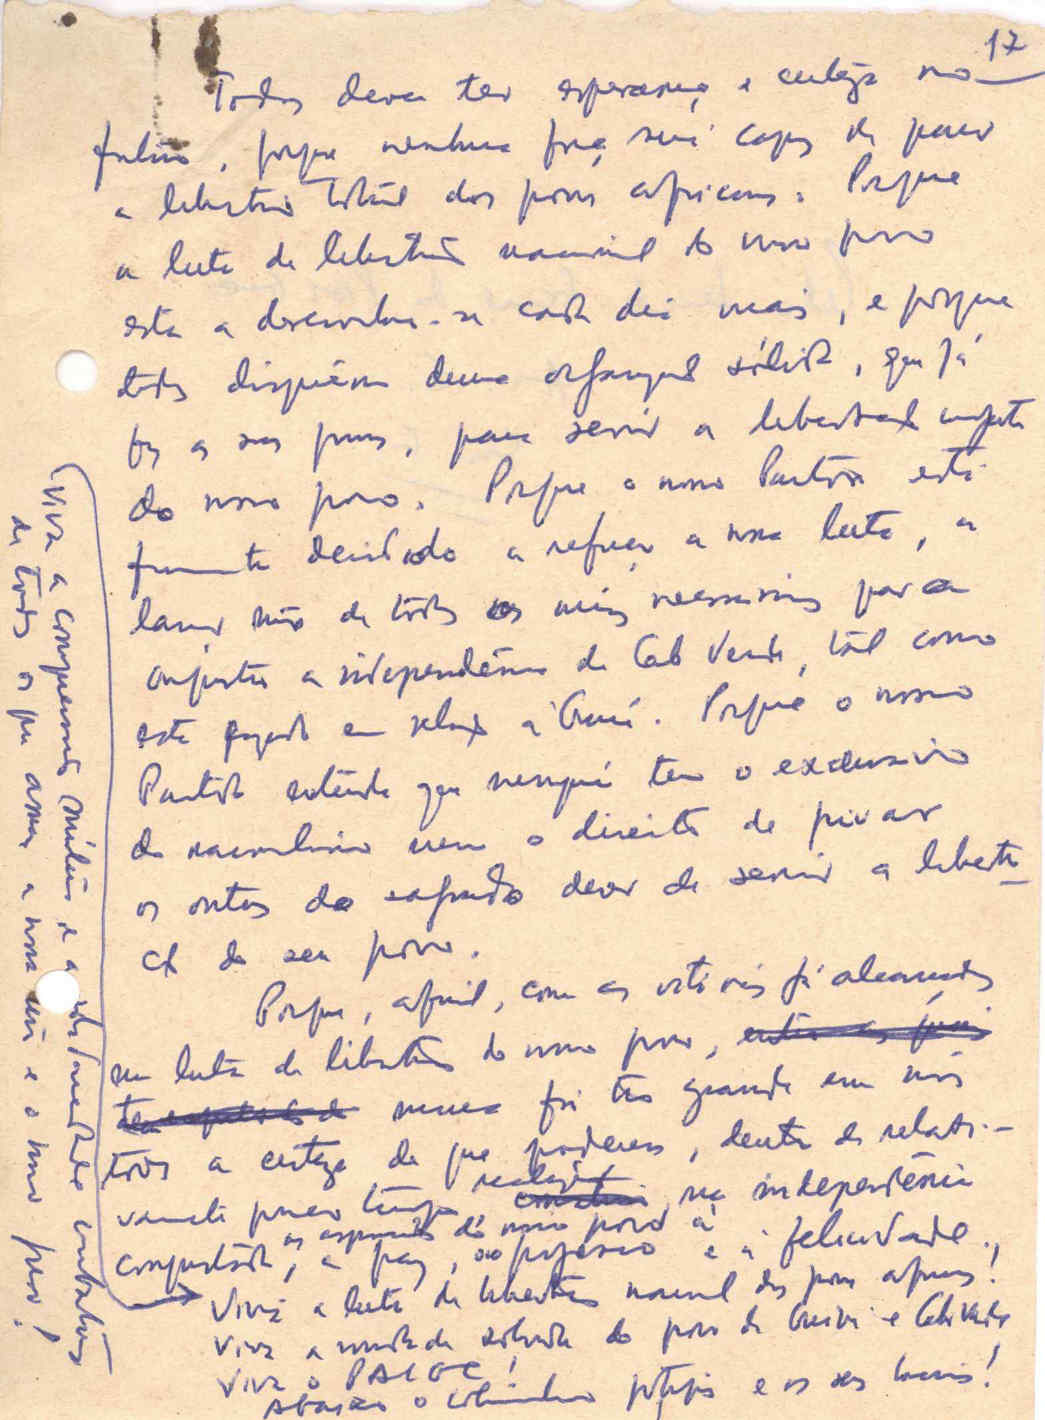 17
Todos devem ter esperança e certeza no
futuro, porque nenhuma força será capaz de parar
a libertação total dos povos africanos. Porque
a luta de libertação nacional do nosso povo
está a desenvolver-se cada dia mais, e porque
todos dispõem duma organização sólida, que já
fez as suas provas, para servir a liberdade
do nosso povo. Porque o nosso Partido está
firmemente decidido a reforçar a nossa luta, a
lançar mão de todos os meios necessários para
conquistar a independência de Cabo Verde, tal como
está fazendo em relação à Guiné. Porque o nosso
Partido entende que ninguém tem o exclusivo
do nacionalismo nem o direito de privar
os outros do sagrado dever de servir a liberda-
de do seu povo.
Porque, afinal, com as vitórias já alcançadas
na luta de libertação do nosso povo,
nunca foi tão grande em nós
todos a certeza de que poderemos, dentro de relati-
vamente pouco tempo, realizar, na independência
conquistada, as aspirações do nosso povo à
a paz, ao progresso e à felicidade.
Viva a luta de libertação nacional dos povos africanos!
Viva a unidade do povo da Guiné e Cabo Verde
Viva o PAIGC!
Abaixo o colonialismo português e os seus lacaios!
Viva a compreensão mútua e a combatentes
de todos os que amam a nossa e o nosso povo!